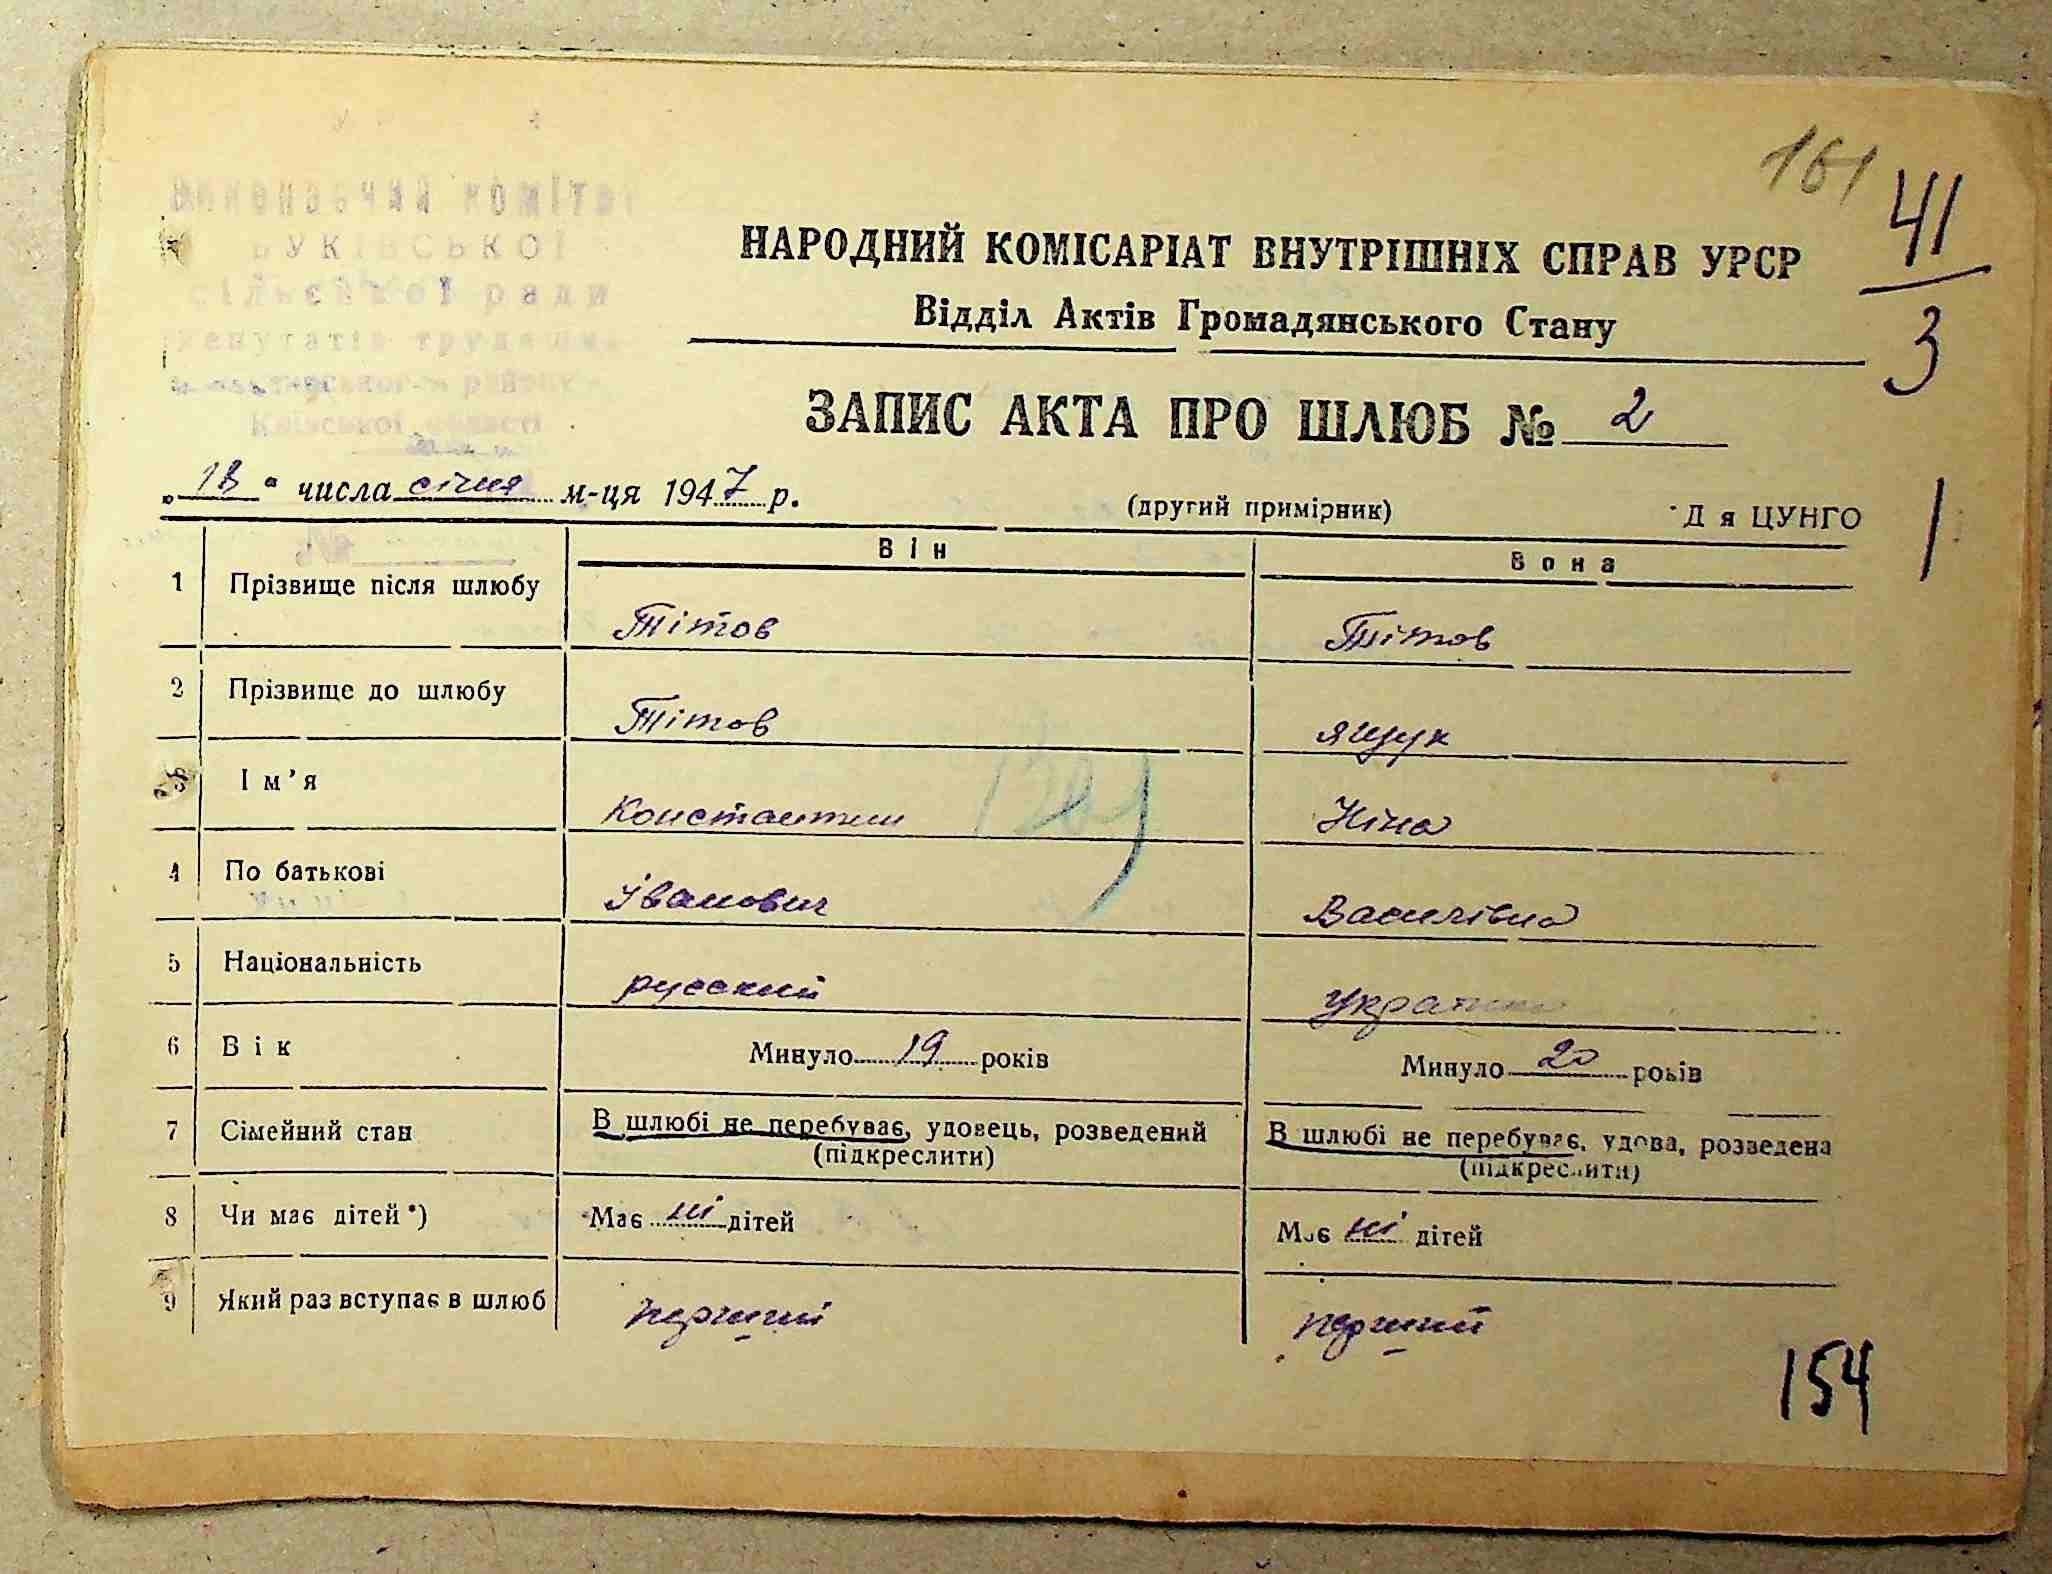 161
41
3
Виконавчий комітет
БУКІВСЬКОЇ
сільської ради
депутатів трудящ
район
Київської області
НАРОДНИЙ КОМІСАРІАТ ВНУТРІШНІХ СПРАВ УРСР
Відділ Актів Громадянського Стану
ЗАПИС АКТА ПРО ШЛЮБ № 2
числа січня м-ця 1947 р.
(другий примірник)
Д я ЦУНГО
1
Він
Вона
1 Прізвище після шлюбу Тітов Тітов
2 Прізвище до шлюбу Тітов Ящук
3 Ім'я Константин Ніна
4 По батькові Іванович Василівна
5 Національність русский Украинка
6 Вік Минуло 19 років Минуло 20 років
7 Сімейний стан В шлюбі не перебуває, удовець, розведений В шлюбі не перебуває, удова, розведена
(підкреслити) (підкреслити)
8 Чи має дітей*) Має ні дітей Має ні дітей
9 Який раз вступає в шлюб перший перший
154